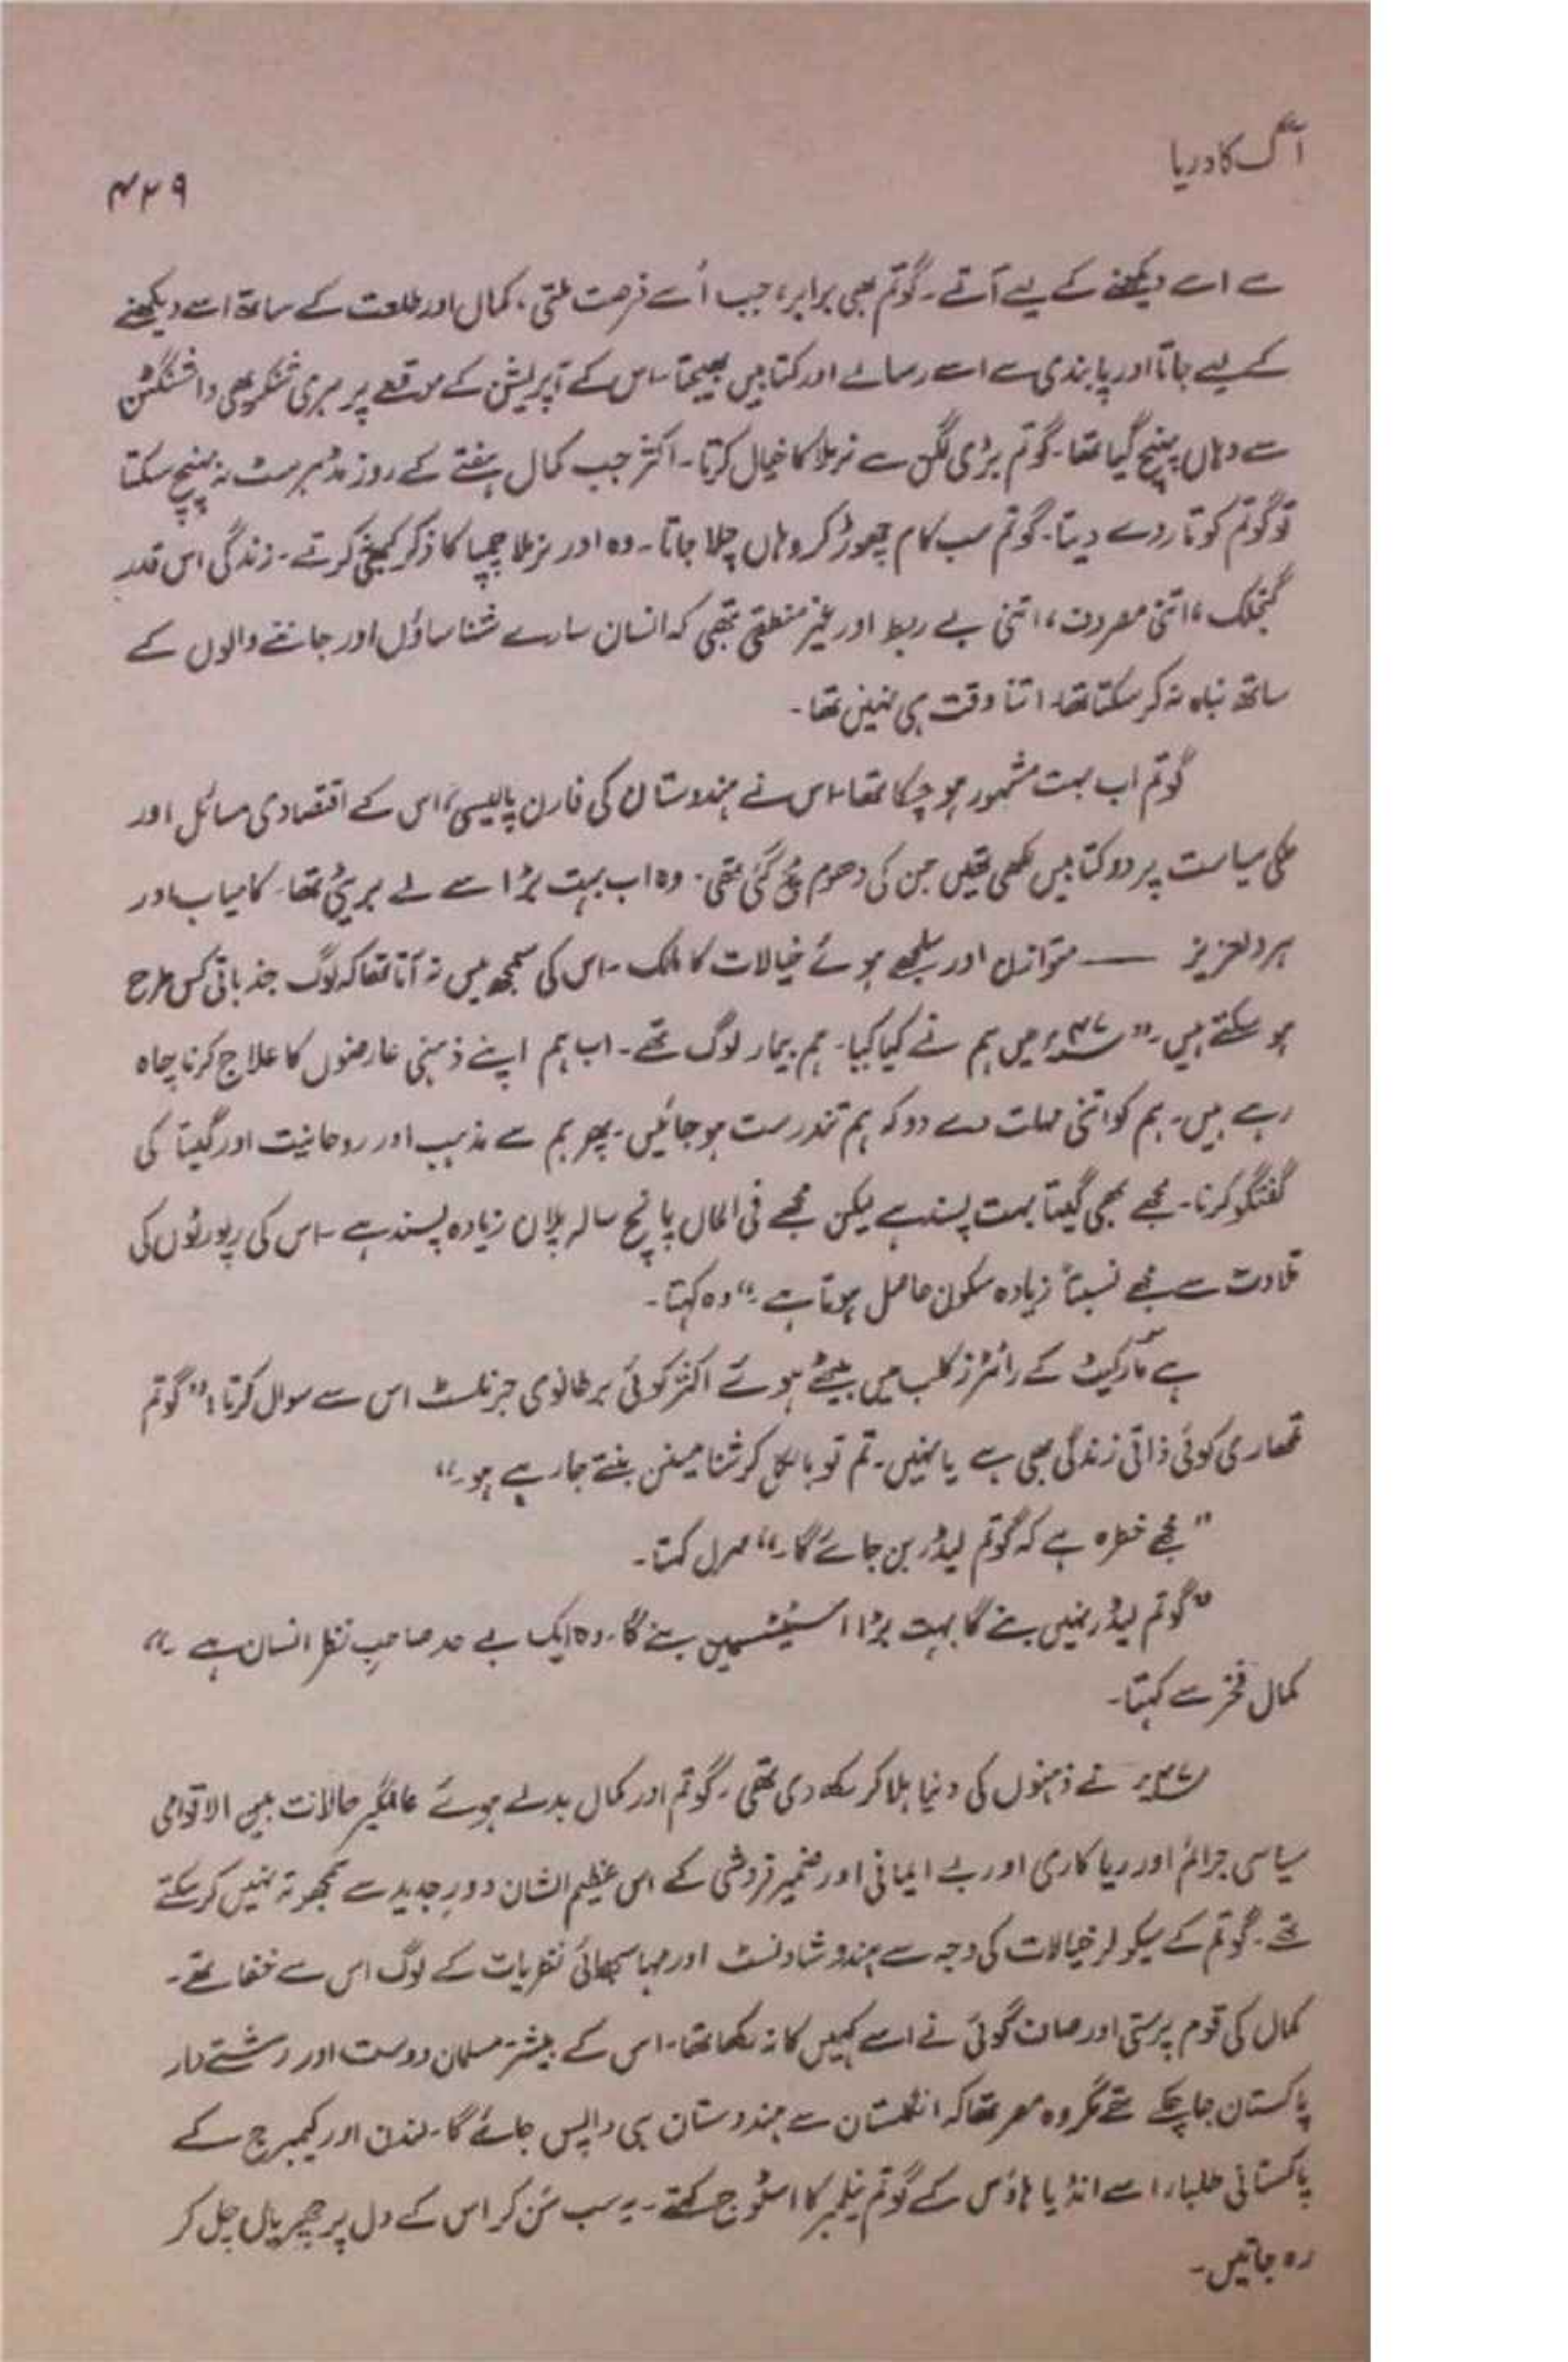 آگ کا دریا
۴۲۹
سے اسے دیکھنے کے لیے آتے۔ گوتم بھی برابر، جب اُسے فرصت ملتی، کمال اور طلعت کے ساتھ اسے دیکھنے
کے لیے جاتا اور پابندی سے اسے رسالے اور کتابیں بھیجتا۔ اس کے آپریشن کے موقعے پر ہری شنکر بھی واشنگٹن
سے وہاں پہنچ گیا تھا۔ گوتم بڑی لگن سے نرملا کا خیال کرتا۔ اکثر جب کمال ہفتے کے روز مڈہرسٹ نہ پہنچ سکتا
تو گوتم کو تار دے دیتا۔ گوتم سب کام چھوڑ کر وہاں چلا جاتا۔ وہ اور نرملا چمپا کا ذکر کبھی نہ کرتے۔ زندگی اس قدر
گنجلک، اتنی مصروف، اتنی بے ربط اور غیر منطقی تھی کہ انسان سارے شناساؤں اور جاننے والوں کے
ساتھ نباہ نہ کر سکتا تھا۔ اتنا وقت ہی نہیں تھا۔
گوتم اب بہت مشہور ہو چکا تھا۔ اس نے ہندوستان کی فارن پالیسی، اس کے اقتصادی مسائل اور
ملکی سیاست پر دو کتابیں لکھی تھیں جن کی دھوم مچ گئی تھی۔ وہ اب بہت بڑا سے لے بریٹی تھا۔ کامیاب اور
ہردلعزیز —— متوازن اور سلجھے ہوئے خیالات کا مالک۔ اس کی سمجھ میں نہ آتا تھا کہ لوگ جذباتی کس طرح
ہو سکتے ہیں۔ ”۴۷ء میں ہم نے کیا کیا۔ ہم بیمار لوگ تھے۔ اب ہم اپنے ذہنی عارضوں کا علاج کرنا چاہ
رہے ہیں۔ ہم کو اتنی مہلت دے دو کہ ہم تندرست ہو جائیں۔ پھر ہم سے مذہب اور روحانیت اور گیتا کی
گفتگو کرنا۔ مجھے بھی گیتا بہت پسند ہے لیکن مجھے فی الحال پانچ سالہ پلان زیادہ پسند ہے۔ اس کی رپورٹوں کی
تلاوت سے مجھے نسبتاً زیادہ سکون حاصل ہوتا ہے۔“ وہ کہتا۔
ہے مارکیٹ کے رائٹرز کلب میں بیٹھے ہوئے اکثر کوئی برطانوی جرنلسٹ اس سے سوال کرتا: ”گوتم
تمھاری کوئی ذاتی زندگی بھی ہے یا نہیں۔ تم تو بالکل کرشنا مینن بنتے جا رہے ہو۔“
”مجھے خطرہ ہے کہ گوتم لیڈر بن جائے گا۔“ سرل کہتا۔
”گوتم لیڈر نہیں بنے گا بہت بڑا اسٹیٹسمین بنے گا۔ وہ ایک بے حد صاحبِ نظر انسان ہے۔“
کمال فخر سے کہتا۔
۴۷ء نے ذہنوں کی دنیا ہلا کر رکھ دی تھی۔ گوتم اور کمال بدلے ہوئے عالمگیر حالات بین الاقوامی
سیاسی جرائم اور ریا کاری اور بے ایمانی اور ضمیر فروشی کے اس عظیم الشان دورِ جدید سے سمجھوتہ نہیں کر سکتے
تھے۔ گوتم کے سیکولر خیالات کی وجہ سے ہندو شاونسٹ اور مہا سبھائی نظریات کے لوگ اس سے خفا تھے۔
کمال کی قوم پرستی اور صاف گوئی نے اسے کہیں کا نہ رکھا تھا۔ اس کے بیشتر مسلمان دوست اور رشتے دار
پاکستان جا چکے تھے مگر وہ مصر تھا کہ انگلستان سے ہندوستان ہی واپس جائے گا۔ لندن اور کیمبرج کے
پاکستانی طلباء اسے انڈیا ہاؤس کے گوتم نیلمبر کا اسٹوج کہتے۔ یہ سب سُن کر اس کے دل پر چھریاں چل کر
رہ جاتیں۔